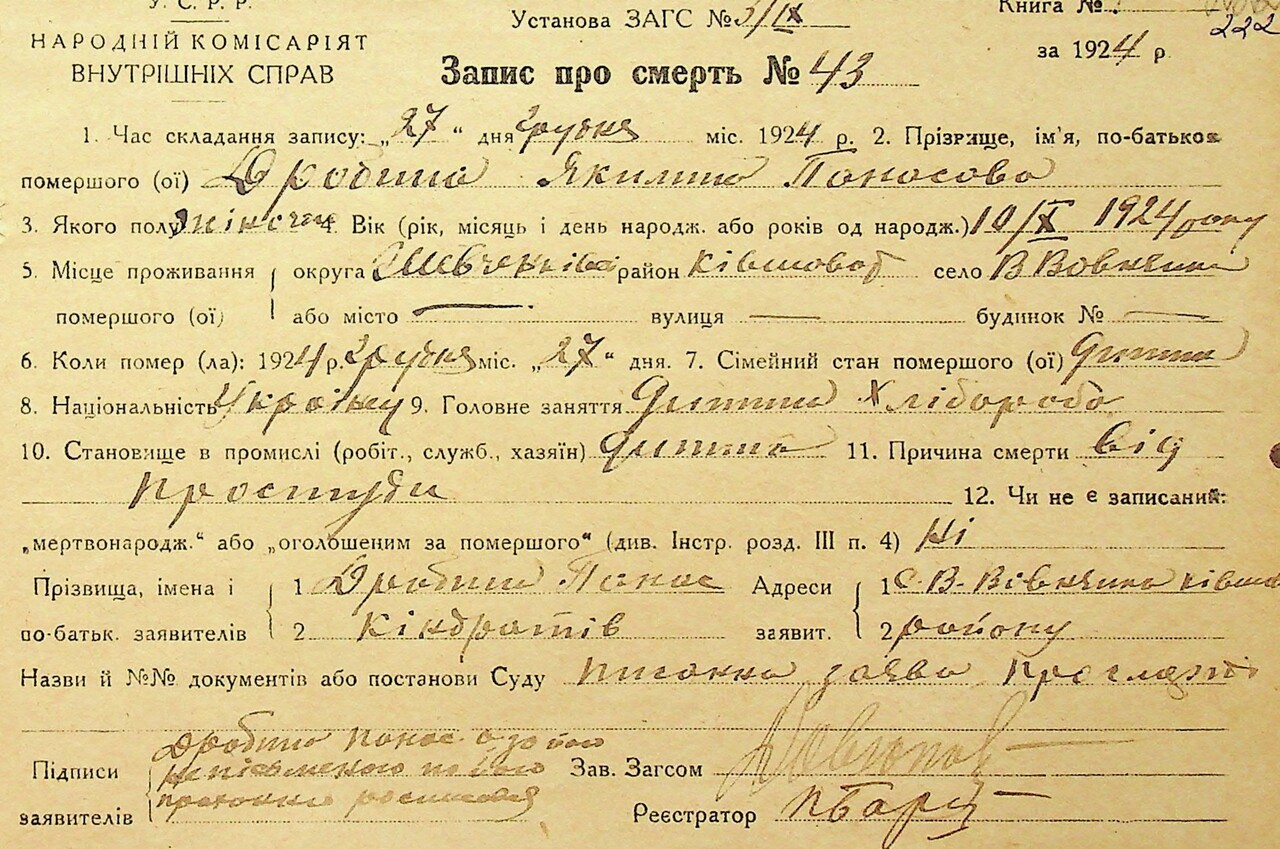 У. С. Р. Р.
НАРОДНІЙ КОМІСАРІЯТ
ВНУТРІШНІХ СПРАВ
Установа ЗАГС № 3/ІХ
Книга №
222
за 1924 р
Запис про смерть № 43
1. Час складання запису: „27" дня Грудня міс. 1924 р. 2. Прізвище, ім'я, по-батьков
помершого (ої) Дробина Якилина Панасова
3. Якого полу жіночи 4. Вік (рік, місяць і день народж. або років од народж.) 10/X 1924 року
5. Місце проживання округа Шевченківс район Ківшоват село В Вовнянка
помершого (ої) або місто — вулиця — будинок № —
6. Коли помер (ла): 1924 р. Грудня міс. „27" дня. 7. Сімейний стан помершого (ої) Дитина
8. Національність Українц 9. Головне заняття Дитина Хлібороба
10. Становище в промислі (робіт., служб., хазяїн) Дитина 11. Причина смерти Від
Простуди
12. Чи не є записаний:
„мертвонародж." або „оголошеним за помершого" (див. Інстр. розд. III п. 4) Ні
Прізвища, імена і 1 Дробина Панас Адреси 1 С. В-Вівнянка ківшов
по-батьк. заявителів 2 Кіндратів заявит. 2 району
Назви й №№ документів або постанови Суду заява
Підписи
заявителів
Дробина Панас а за його
неписьменого по його
Зав. Загсом
Реєстратор